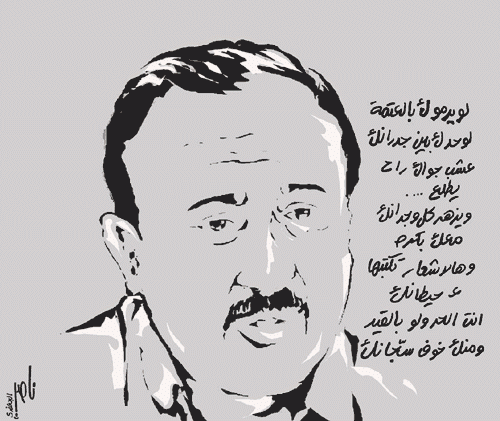 لو يرموك بالعتمة
لوحدك بين جدرانك
عشب جواك راح
يطلع ...
ويزهر كل وجدانك
معك بكره
وهالاشعار تكتبها
ع حيطانك
انت الحر ولو بالقيد
ومنك خوف سجانك